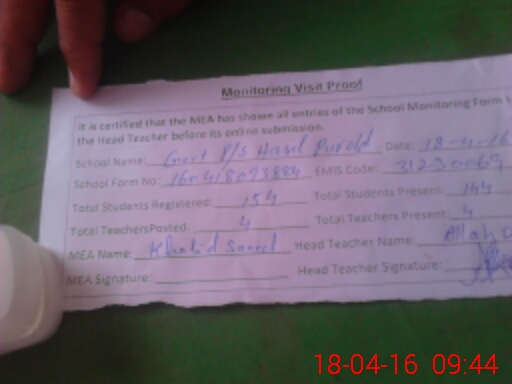 Monitoring Visit Proof
It is certified that the MEA has shown all entries of the School Monitoring Form t
the Head Teacher before its online submission.
School Name: Govt P/S Date: 18-4-16
School Form No: EMIS Code:
Total Students Registered: 154 Total Students Present: 144
Total Teachers Posted: 4 Total Teachers Present: 4
MEA Name: Khalid Saeed Head Teacher Name: Allah
MEA Signature: Head Teacher Signature:
18-04-16 09:44